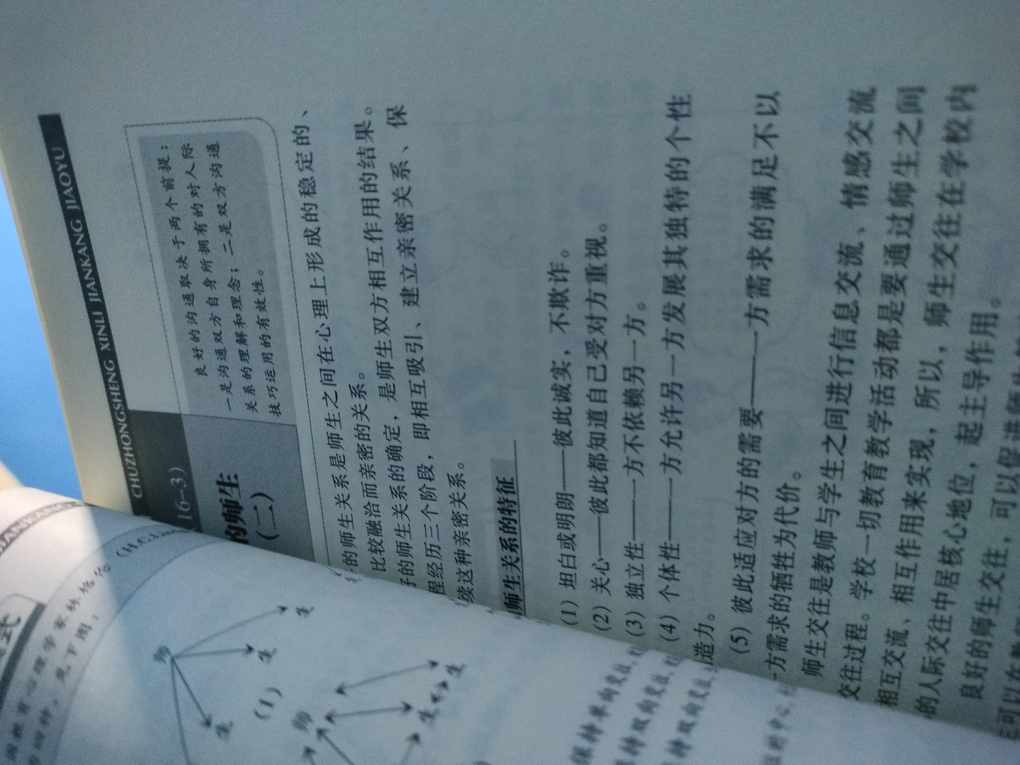 CHUZHONGSHENG XINLI JIANKANG JIAOYU
16-3)
的师生
(二)
良好的沟通取决于两个前提：
一是沟通双方自身所拥有的对人际
关系的理解和理念；二是双方沟通
技巧运用的有效性。
的师生关系是师生之间在心理上形成的稳定的、
比较融洽而亲密的关系。
的师生关系的确定，是师生双方相互作用的结果。
程经历三个阶段，即相互吸引、建立亲密关系、保
续这种亲密关系。
师生关系的特征
(1) 坦白或明朗——彼此诚实，不欺诈。
(2) 关心——彼此都知道自己受对方重视。
(3) 独立性——一方不依赖另一方。
(4) 个体性——一方允许另一方发展其独特的个性
造力。
(5) 彼此适应对方的需要——一方需求的满足不以
方需求的牺牲为代价。
师生交往是教师与学生之间进行信息交流、情感交流
交往过程。学校一切教育教学活动都是要通过师生之间
相互交流、相互作用来实现，所以，师生交往在学校内
的人际交往中居核心地位，起主导作用。
良好的师生交往，可以促进师生
式
(H.C.Lin
教育心理学家林格伦
见下图：
师
生
生
生
(1)
师
生
生
生
保持单向交往
持双向交往
持双向交往